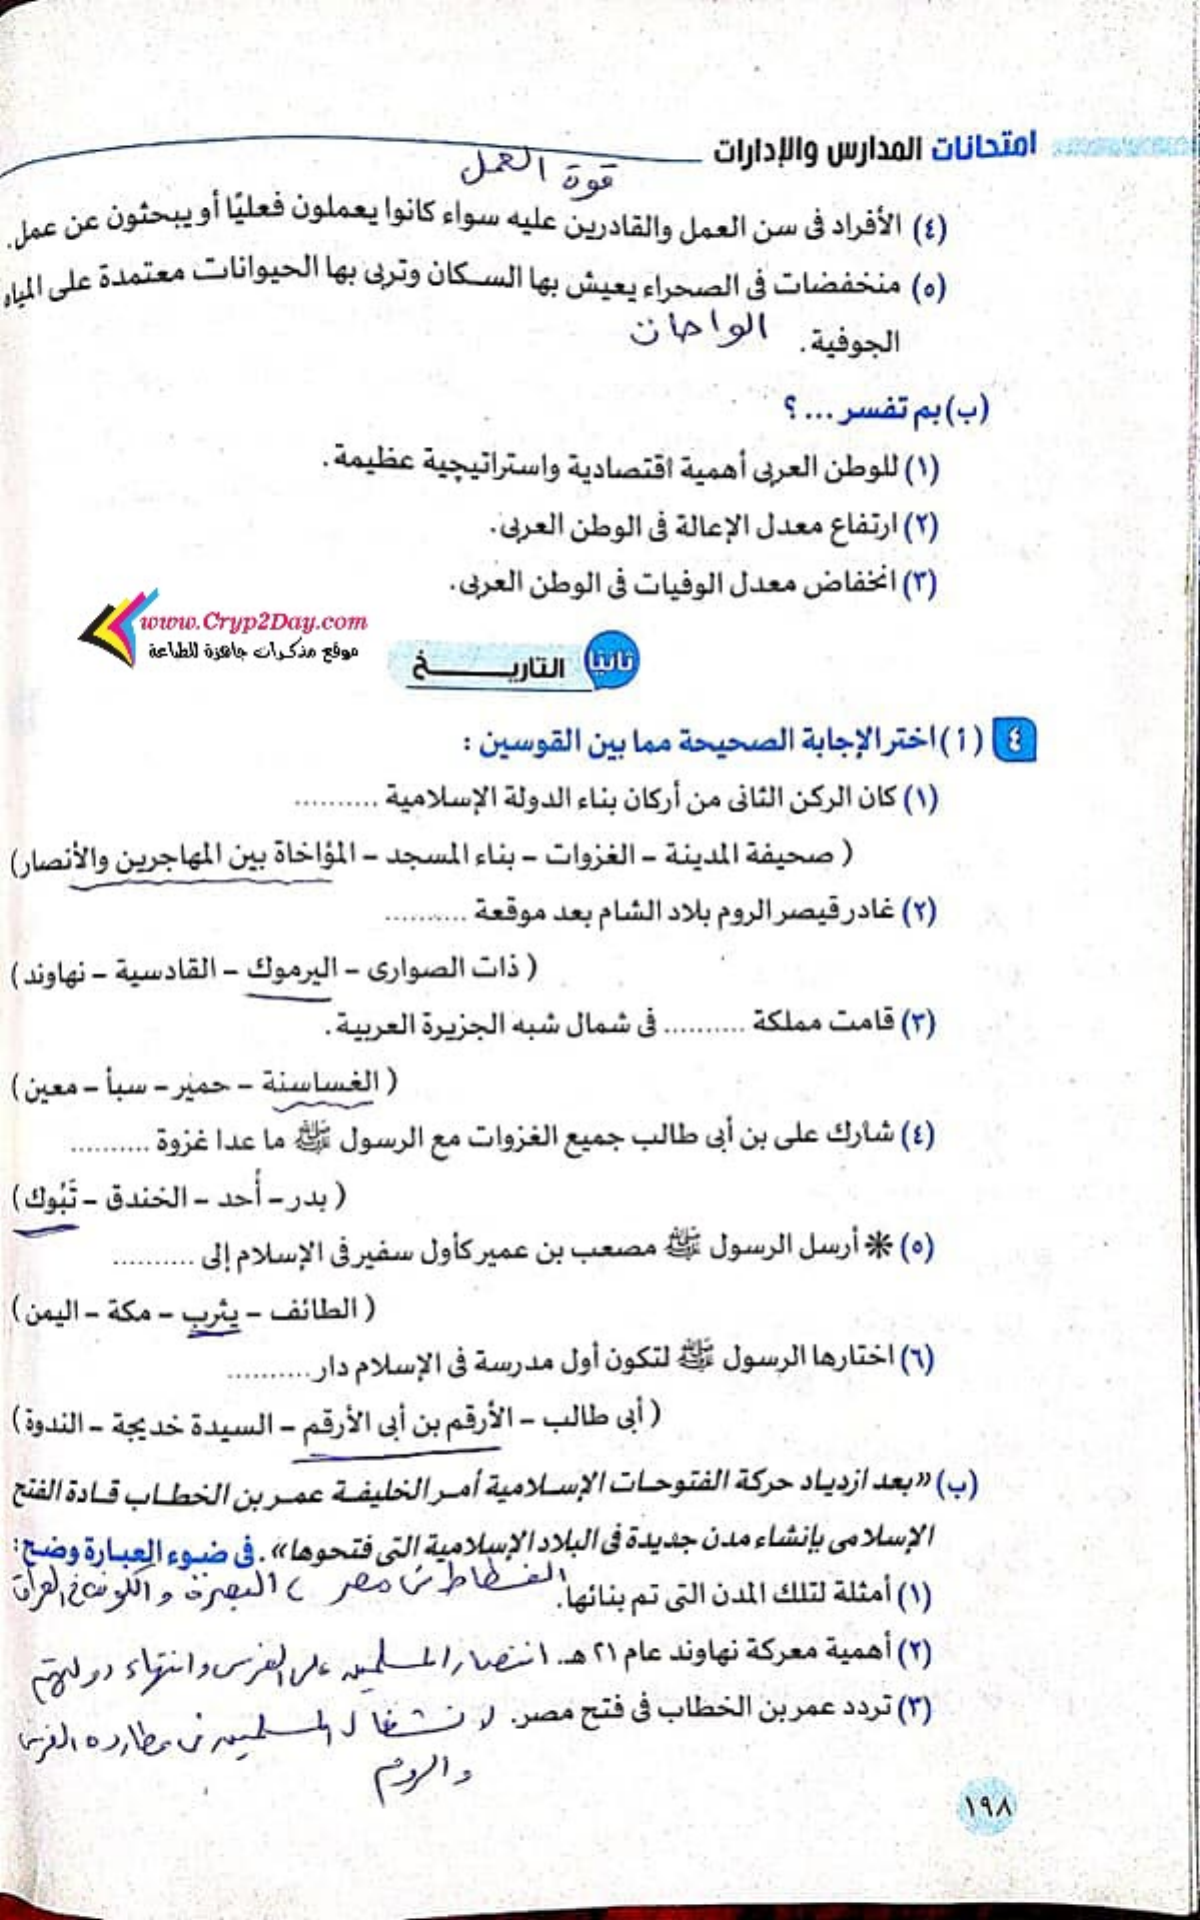 امتحانات المدارس والإدارات
قوة العمل
(٤) الأفراد فى سن العمل والقادرين عليه سواء كانوا يعملون فعليًا أو يبحثون عن عمل.
(٥) منخفضات فى الصحراء يعيش بها السكان وتربى بها الحيوانات معتمدة على المياه
الجوفية. الواحات
(ب) بم تفسر ... ؟
(١) للوطن العربى أهمية اقتصادية واستراتيجية عظيمة.
(٢) ارتفاع معدل الإعالة فى الوطن العربى.
(٣) انخفاض معدل الوفيات فى الوطن العربى.
www.Cryp2Day.com
موقع مذكرات جاهزة للطباعة
ثانيًا التاريخ
٤ (أ) اختر الإجابة الصحيحة مما بين القوسين :
(١) كان الركن الثانى من أركان بناء الدولة الإسلامية ..........
( صحيفة المدينة – الغزوات – بناء المسجد – المؤاخاة بين المهاجرين والأنصار)
(٢) غادر قيصر الروم بلاد الشام بعد موقعة ..........
( ذات الصوارى – اليرموك – القادسية – نهاوند)
(٣) قامت مملكة .......... فى شمال شبه الجزيرة العربية.
( الغساسنة – حمير – سبأ – معين)
(٤) شارك على بن أبى طالب جميع الغزوات مع الرسول ﷺ ما عدا غزوة ..........
( بدر – أُحد – الخندق – تَبُوك)
(٥) ❋ أرسل الرسول ﷺ مصعب بن عمير كأول سفير فى الإسلام إلى ..........
( الطائف – يثرب – مكة – اليمن)
(٦) اختارها الرسول ﷺ لتكون أول مدرسة فى الإسلام دار ..........
( أبى طالب – الأرقم بن أبى الأرقم – السيدة خديجة – الندوة)
(ب) «بعد ازدياد حركة الفتوحات الإسلامية أمر الخليفة عمر بن الخطاب قادة الفتح
الإسلامى بإنشاء مدن جديدة فى البلاد الإسلامية التى فتحوها». فى ضوء العبارة وضح:
(١) أمثلة لتلك المدن التى تم بنائها. الفسطاط فى مصر ، البصرة والكوفة فى العراق
(٢) أهمية معركة نهاوند عام ٢١ هـ. انتصار المسلمين على الفرس وانتهاء دولتهم
(٣) تردد عمر بن الخطاب فى فتح مصر. لانشغال المسلمين فى مطاردة الفرس
والروم
١٩٨